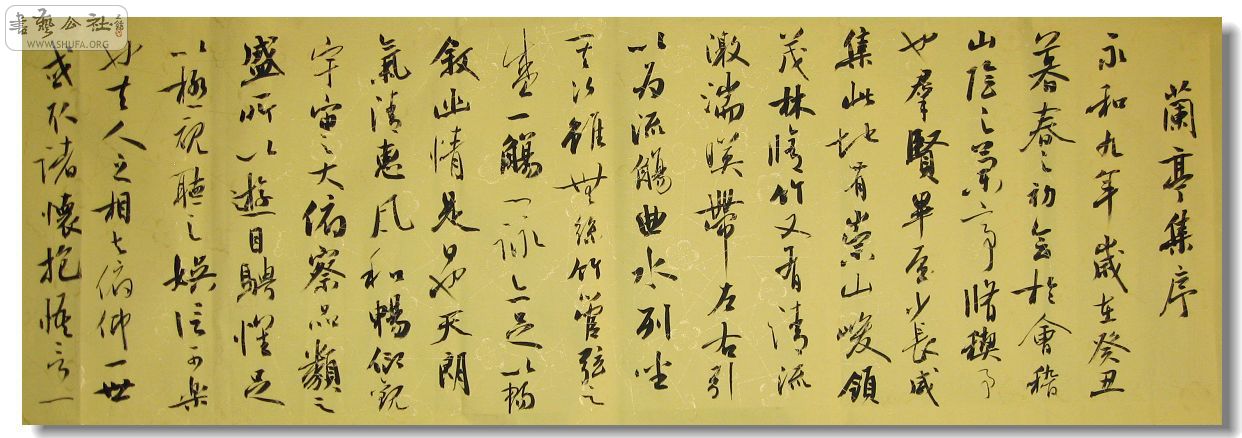 蘭亭集序
永和九年歲在癸丑
暮春之初會於會稽
山陰之蘭亭脩禊事
也羣賢畢至少長咸
集此地有崇山峻領
茂林脩竹又有清流
激湍暎帶左右引
以為流觴曲水列坐
其次雖無絲竹管弦之
盛一觴一詠亦足以暢
敘幽情是日也天朗
氣清惠風和暢仰觀
宇宙之大俯察品類之
盛所以遊目騁懷足
以極視聽之娛信可樂
也夫人之相與俯仰一世
或取諸懷抱悟言一
書藝公社
WWW.SHUFA.ORG